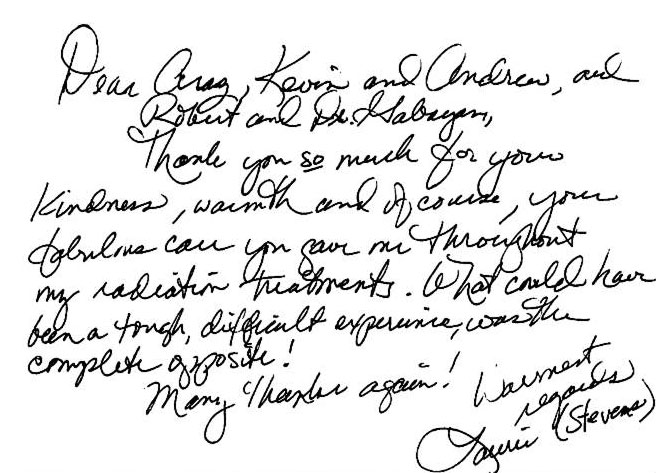 Dear Araz, Kevin and Andrew, and
Robert and Dr. Gabayan,
Thank you so much for your
kindness, warmth and of course, your
fabulous care you gave me throughout
my radiation treatments. What could have
been a tough, difficult experience, was the
complete opposite!
Many thanks again!
Warmest
regards
Laurie (Stevens)